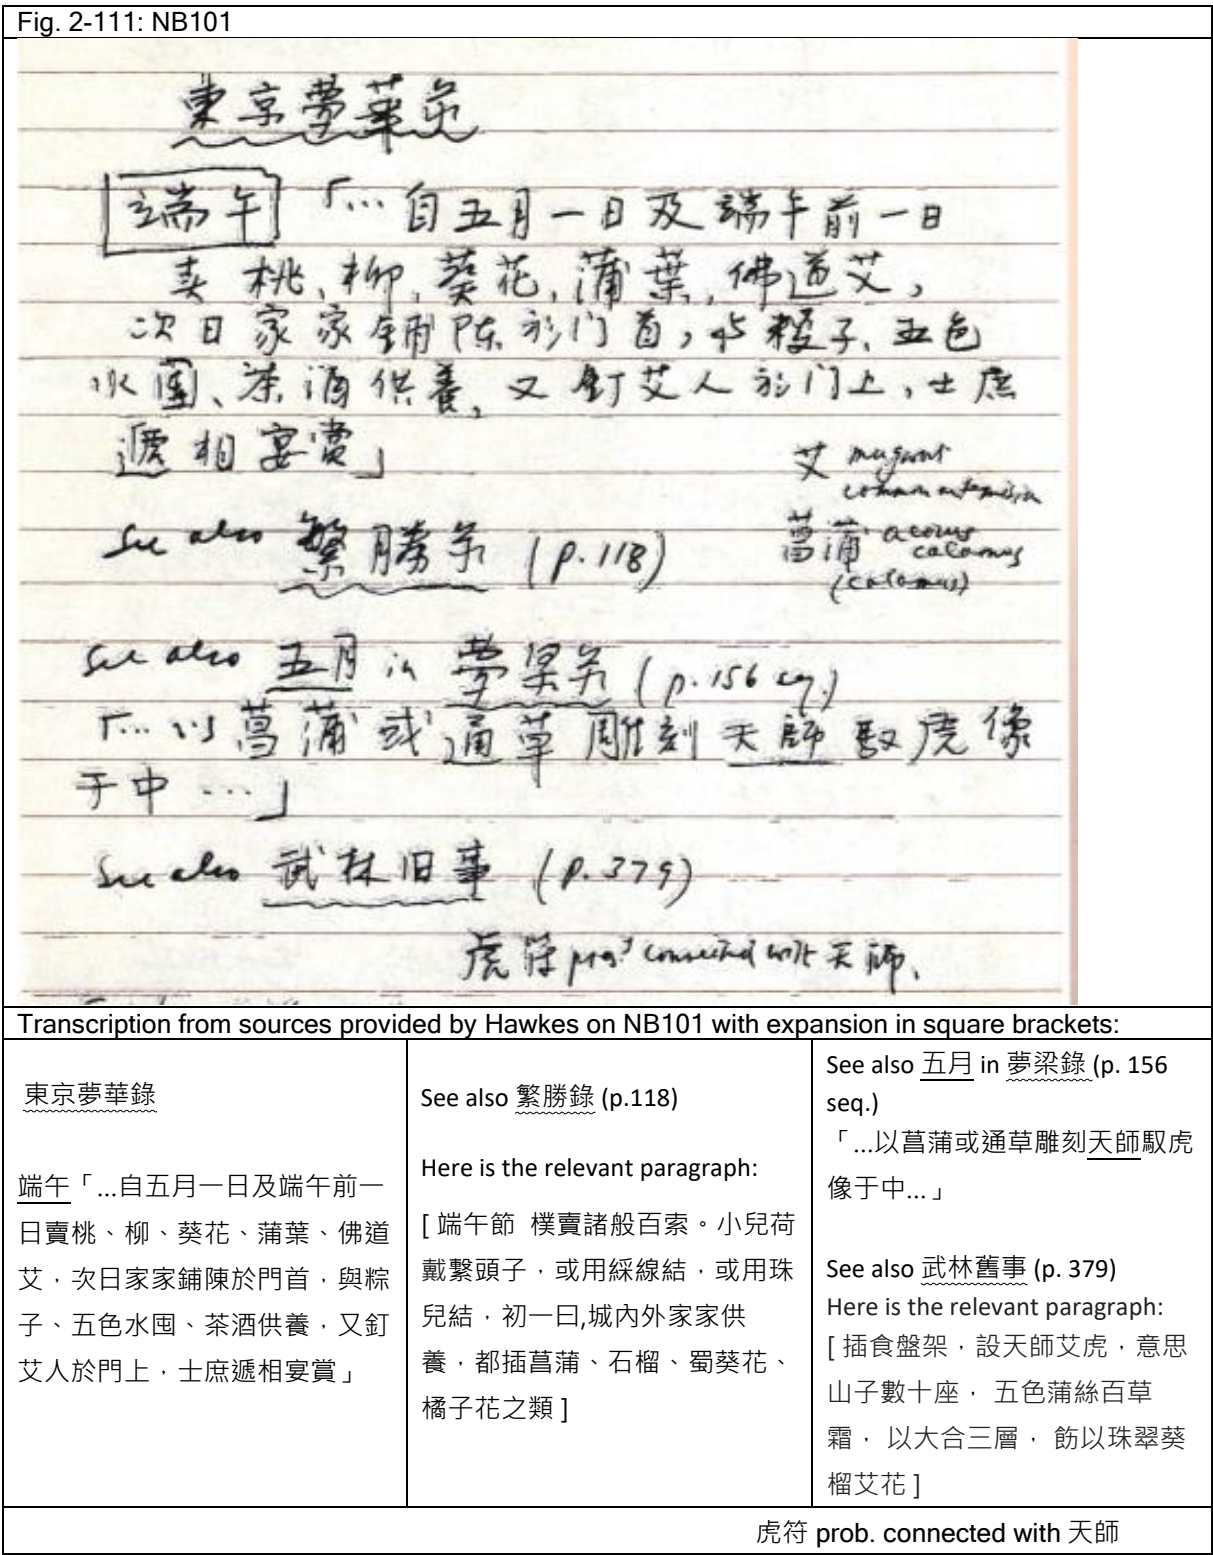 Fig. 2-111: NB101
東京夢華录
端午「…自五月一日及端午前一日
卖桃、柳、葵花、蒲葉、佛道艾,
次日家家铺陈於门首,与粽子、五色
水團、茶酒供養,又釘艾人於门上,士庶
遞相宴賞」
艾 mugwort
common artemisia
See also 繁勝录 (p.118)
菖蒲 acorus
calamus
(calamus)
See also 五月 in 夢梁录 (p.156 seq.)
「…以菖蒲或通草雕刻天師馭虎像
于中…」
See also 武林旧事 (p.379)
虎符 prob connected with 天師.
Transcription from sources provided by Hawkes on NB101 with expansion in square brackets:
東京夢華錄
端午「...自五月一日及端午前一
日賣桃、柳、葵花、蒲葉、佛道
艾,次日家家鋪陳於門首,與粽
子、五色水囤、茶酒供養,又釘
艾人於門上,士庶遞相宴賞」
See also 繁勝錄 (p.118)
Here is the relevant paragraph:
[ 端午節 樸賣諸般百索。小兒荷
戴繫頭子,或用綵線結,或用珠
兒結,初一曰,城內外家家供
養,都插菖蒲、石榴、蜀葵花、
橘子花之類 ]
See also 五月 in 夢梁錄 (p. 156
seq.)
「...以菖蒲或通草雕刻天師馭虎
像于中...」
See also 武林舊事 (p. 379)
Here is the relevant paragraph:
[ 插食盤架,設天師艾虎,意思
山子數十座, 五色蒲絲百草
霜, 以大合三層, 飾以珠翠葵
榴艾花 ]
虎符 prob. connected with 天師